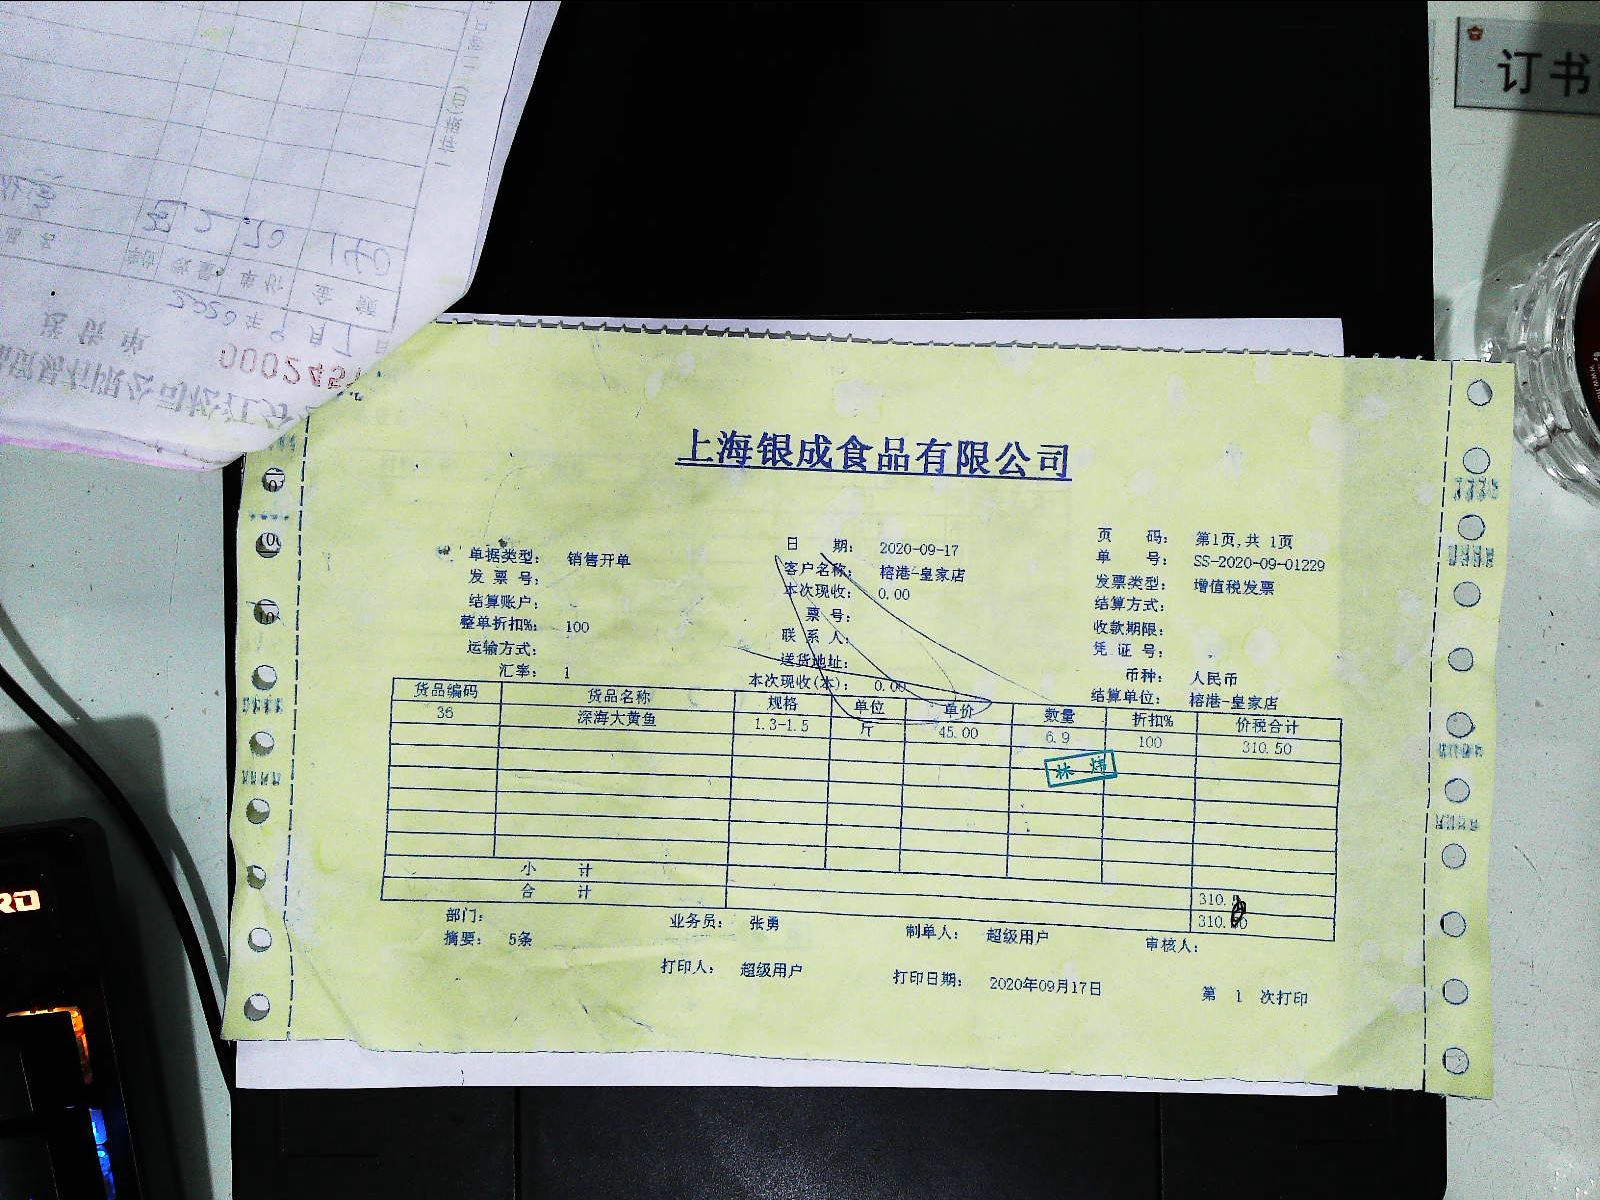 订书
单位 数量 单价 金 额
2 70 140
2020年9月1日
送 货 单
000245
上海银成食品有限公司
单据类型: 销售开单 日 期: 2020-09-17 页 码: 第1页,共 1页
发 票 号: 客户名称: 榕港-皇家店 单 号: SS-2020-09-01229
结算账户: 本次现收: 0.00 发票类型: 增值税发票
整单折扣%: 100 票 号: 结算方式:
运输方式: 联 系 人: 收款期限:
汇率: 1 送货地址: 凭 证 号:
本次现收(本): 0.00 币种: 人民币
结算单位: 榕港-皇家店
货品编码 货品名称 规格 单位 单价 数量 折扣% 价税合计
36 深海大黄鱼 1.3-1.5 斤 45.00 6.9 100 310.50
林 炜
小 计 310.
合 计 310.
部门: 业务员: 张勇 制单人: 超级用户 审核人:
摘要: 5条
打印人: 超级用户 打印日期: 2020年09月17日 第 1 次打印